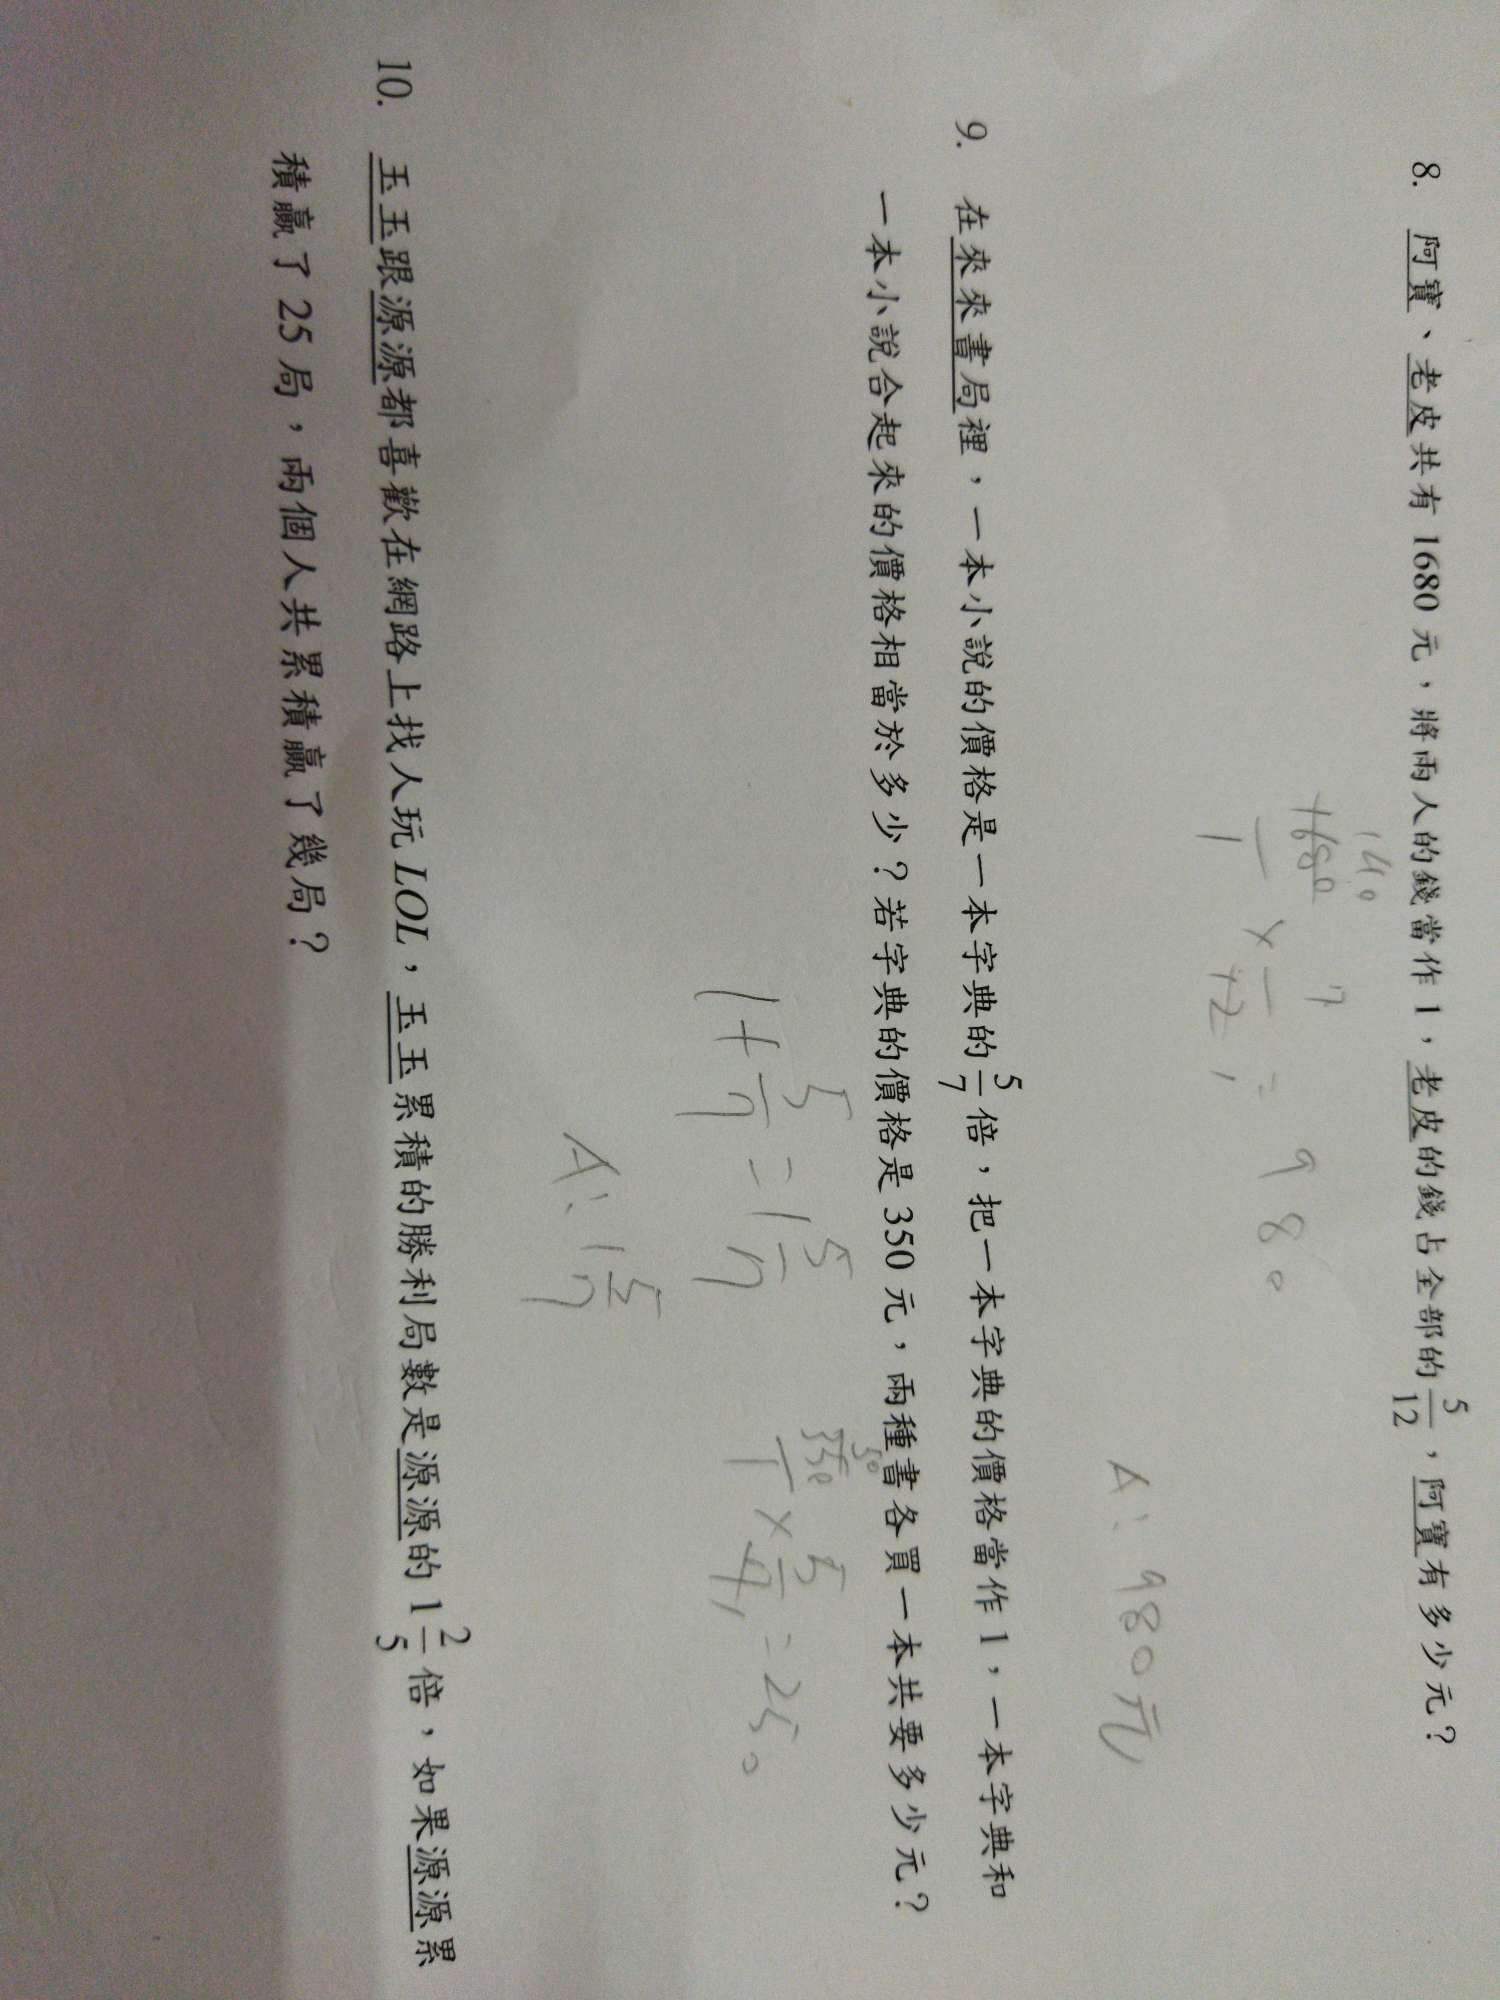 8. 阿寶、老皮共有 1680 元，將兩人的錢當作 1，老皮的錢占全部的 5/12，阿寶有多少元？
140 7
1680/1 × /12 = 980
1
A：980元
9. 在來來書局裡，一本小說的價格是一本字典的 5/7 倍，把一本字典的價格當作 1，一本字典和
一本小說合起來的價格相當於多少？若字典的價格是 350 元，兩種書各買一本共要多少元？
1+5/7=1 5/7
50
350/1 × 5/7 = 250
1
A：1 5/7
10. 玉玉跟源源都喜歡在網路上找人玩 LOL，玉玉累積的勝利局數是源源的 1 2/5 倍，如果源源累
積贏了 25 局，兩個人共累積贏了幾局？